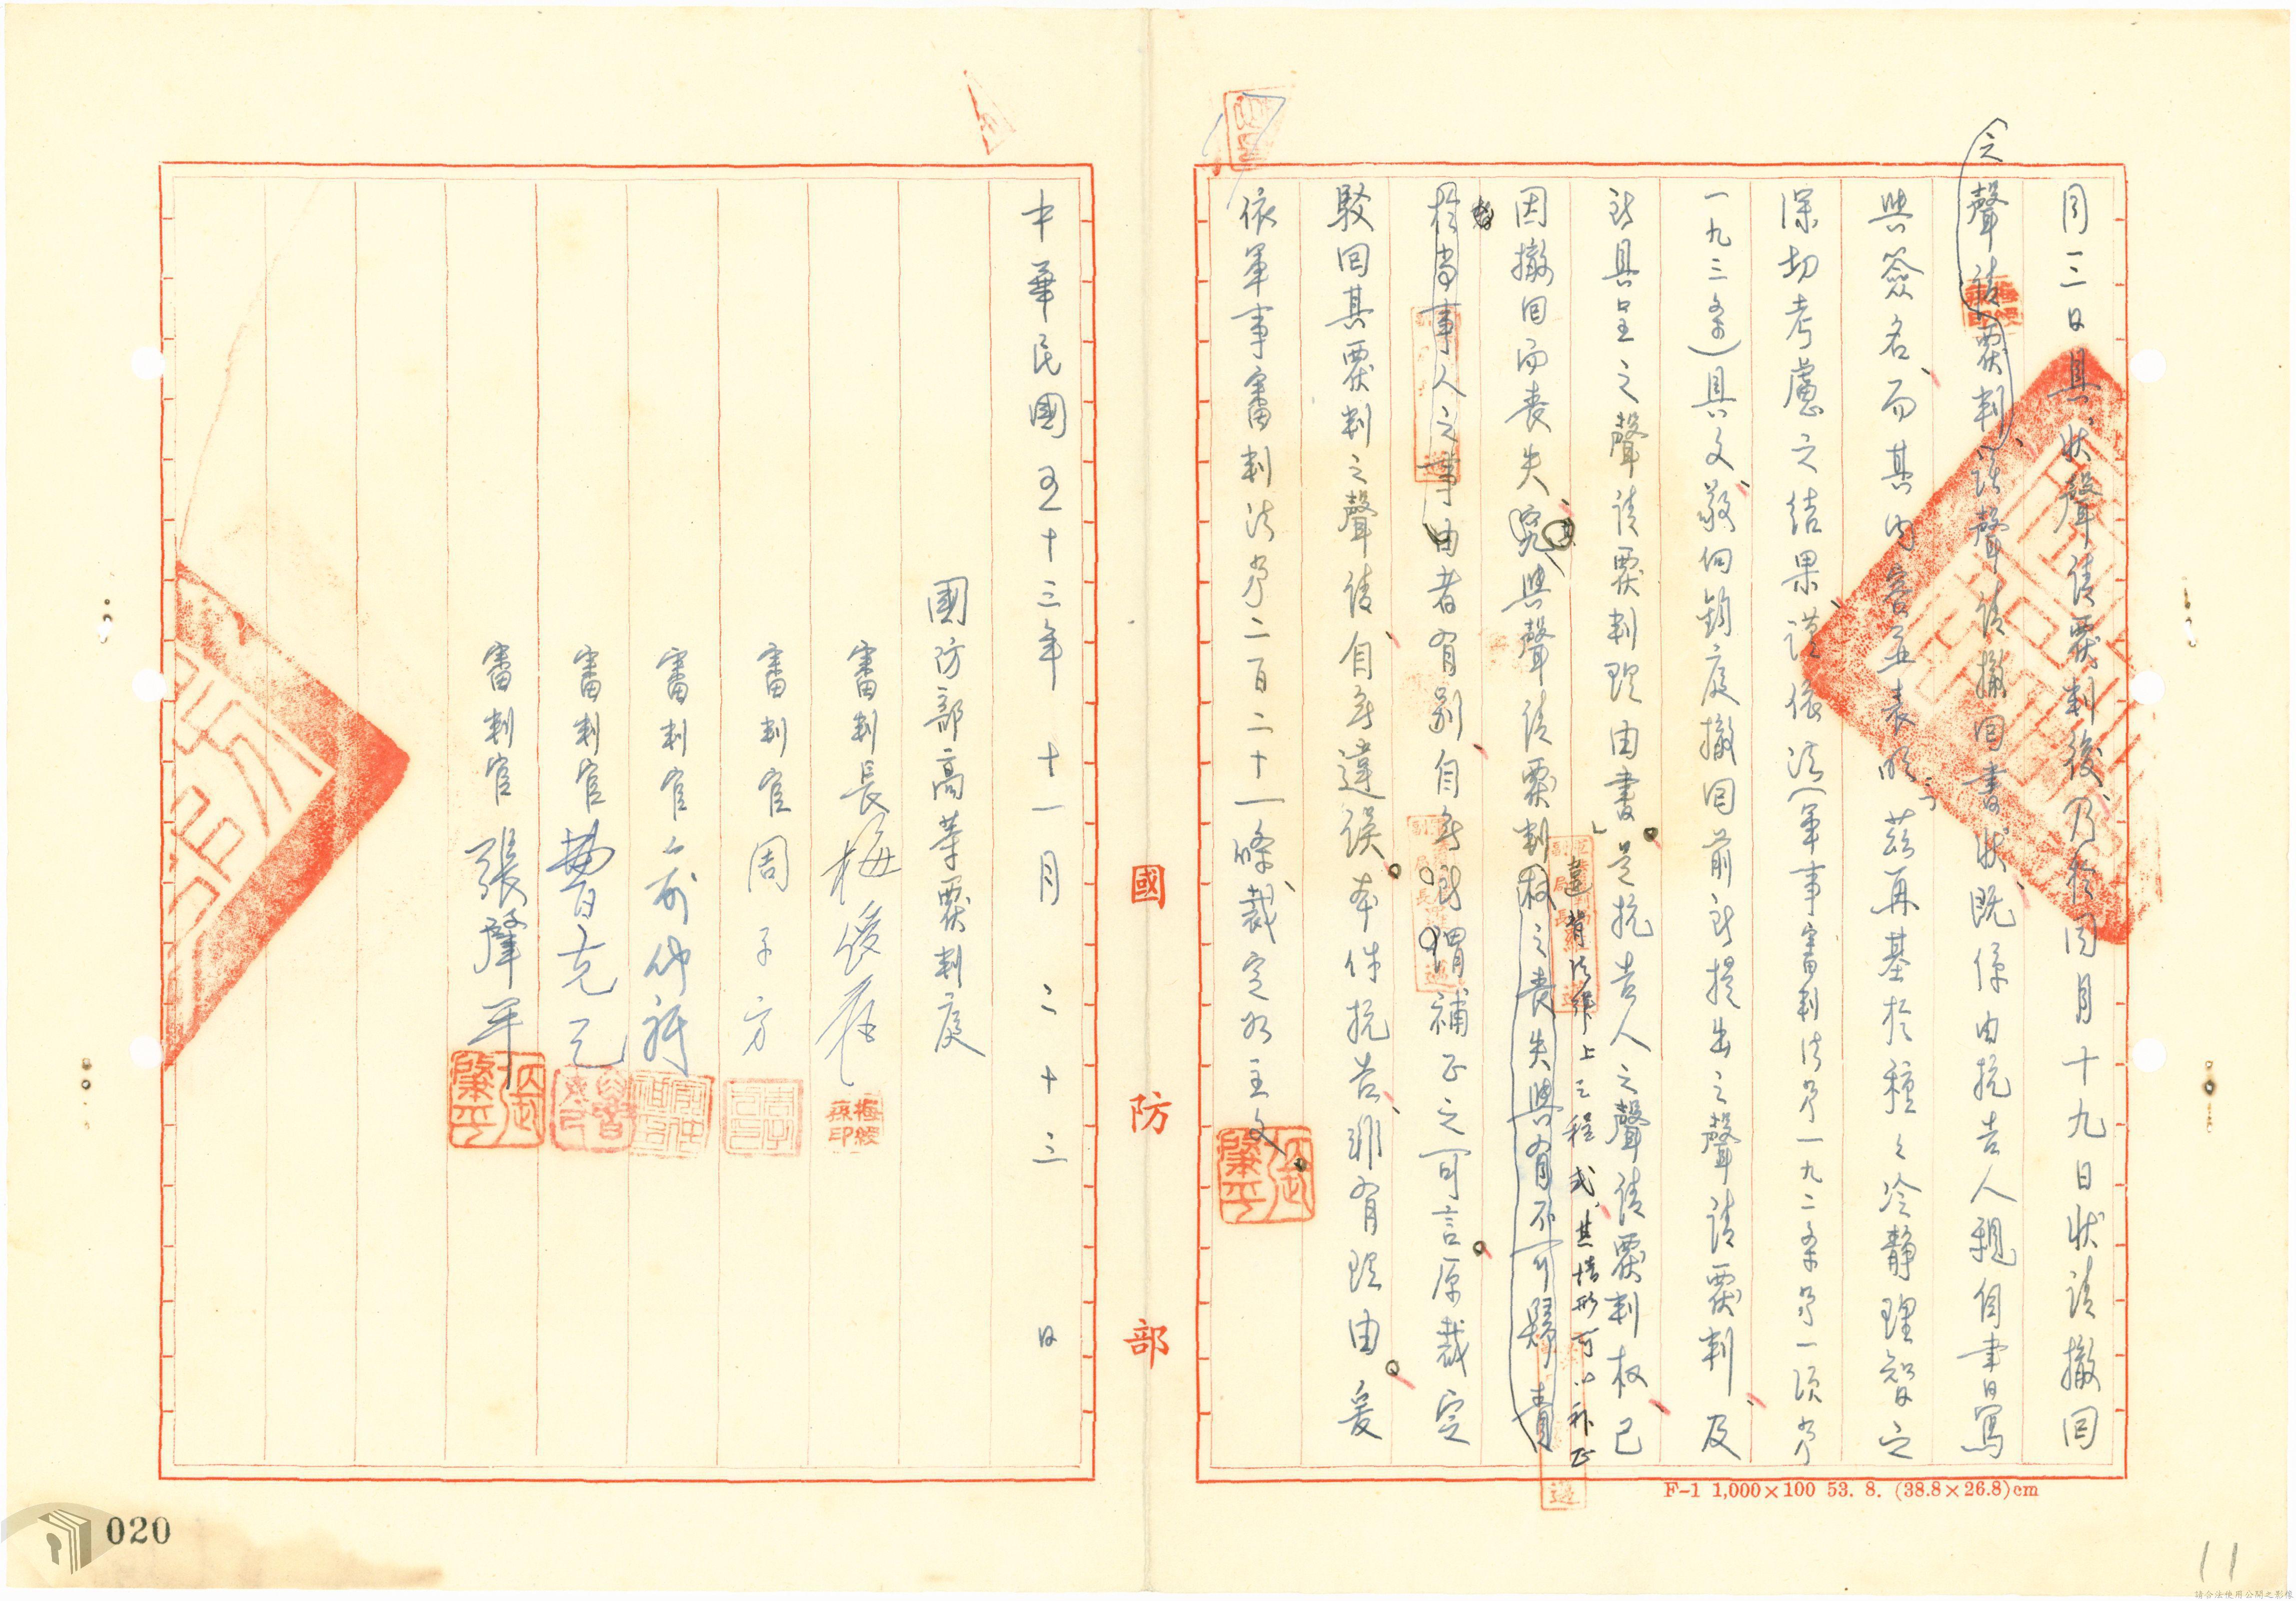 月三日具狀聲請覆判後乃於同月十九日狀請撤回
聲請覆判該聲請撤回書狀既係由抗告人親自書寫
與簽名而其內容並表明茲再基於種々冷靜理智之
深切考慮之結果謹依法(軍事審判法第一九二条第一項第
一九三条)具文敬向鈞庭撤回前所提出之聲請覆判及
所具呈之聲請覆判理由書」是抗告人之聲請覆判权已
違背法律上之程式其情形可以补正
因撤回而喪失究與聲請覆判权之喪失與有不可歸責
於當事人之事由者有別自無所謂補正之可言原裁定
駁回其覆判之聲請自無違誤本件抗告非有理由爰
依軍事審判法第二百二十一條裁定如主文
中華民國五十三年十一月二十三日
國防部高等覆判庭
審判長梅綬蓀
審判官周子方
審判官
審判官曹克己
審判官張肇平
國防部
F-1 1,000×100 53. 8. (38.8×26.8)cm
020
11
請合法使用公開之影像